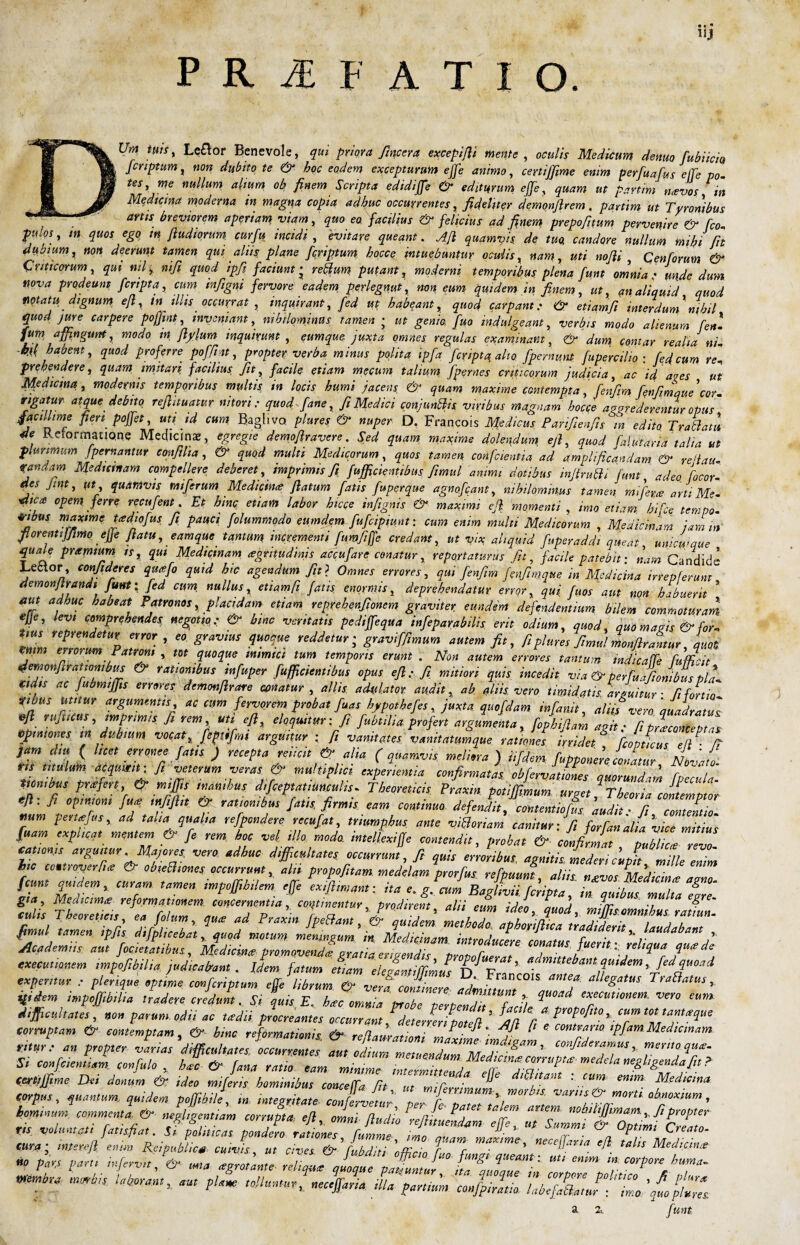 iij
PRÆFATIO.
DUm tuis, Lector Benevole, qui priora sincera excepisti mente, oculis Medicum denuo subiicio
scriptum, non dubito te & hoc eodem excepturum esse animo, certissime enim persuasus esse po-
tes, me nullum alium ob finem Scripta edidisse & editurum esse, quam ut partim nævos, in
Medicina moderna in magna copia adhuc occurrentes, fideliter demonstrem, partim ut Tyronibus
artis breviorem aperiam viam, quo eo facilius & felicius ad finem prepositum pervenire & sco-
pulos, in quos ego in studiorum cursu incidi, evitare queant. Ast quamvis de tuo candore nullum mihi sit
dubium, non deerunt tamen qui aliis plane scriptum hocce intuebuntur oculis, nam, uti nosti, Censorum &
Criticorum, qui nil, nisi quod ipsi faciunt; rectum putant, moderni temporibus plena sunt omnia: unde dum
nova prodeunt scripta, cum insigni fervore eadem perlegnut, non eum quidem in finem, ut, an aliquid, quod
notatu dignum est, in illis occurrat, inquirant, sed ut habeant, quod carpant: & etiamsi interdum nihil,
quod jure carpere possint, inveniant, nihilominus tamen; ut genio suo indulgeant, verbis modo alienum sen-
sum affingunt, modo in stylum inquirunt, eumque juxta omnes regulas examinant, & dum contar realia ni-
hil habent, quod proferre possint, propter verba minus polita ipsa scripta alto spernunt supercilio: sed cum re-
prehendere, quam imitari facilius sit, facile etiam mecum talium spernes criticorum judicia, ac id ages, ut
Medicina, modernis temporibus multis in locis humi jacens & quam maxime contempta, sensim sensimque cor-
rigatur atque debito restituatur nitori: quod sane, si Medici conjunctis viribus magnam hocce aggrederentur opus,
facillime fieri posset, uti id cum Baglivo plures & nuper D. Francois Medicus Parisiensis in edito Tractatu
de Reformatione Medicinæ, egregie demostravere. Sed quam maxime dolendum est, quod salutaria talia ut
plurimum spernantur consilia, & quod multi Medicorum, quos tamen conscientia ad amplificandam & restau-
randam Medicinam compellere deberet, imprimis si sufficientibus simul animi dotibus instructi sunt, adeo socor-
des sint, ut, quamvis miserum Medicinæ statum satis superque agnoscant, nihilominus tamen miseræ arti Me-
dicæ opem ferre recusent. Et hinc etiam labor hicce insignis & maximi est momenti, imo etiam hisce tempo-
ribus maxime tædiosus si pauci solummodo eumdem suscipiunt: cum enim multi Medicorum, Medicinam jam in
florentissimo esse statu, eamque tantum incrementi sumsisse credant, ut vix aliquid superaddi queat, unicuique,
quale præmium is, qui Medicinam ægritudinis accusare conatur, reportaturus sit, facile patebit: nam Candide
Lector, confideres quæso quid hic agendum sit? Omnes errores, qui sensim sensimque in Medicina irrepserunt,
demonstrandi sunt; sed cum nullus, etiamsi satis enormis, deprehendatur error, qui suos aut non habuerit,
aut adhuc habeat Patronos, placidam etiam reprehensionem graviter eundem defendentium bilem commoturam
esse, levi comprehendes negotio: & hinc veritatis pedissequa inseparabilis erit odium, quod, quo magis & for-
tius reprendetur error, eo gravius quoque reddetur; gravissimum autem fit, si plures simul monstrantur, quot
enim errorum Patroni, tot quoque inimici tum temporis erunt. Non autem errores tantum indicasse sufficit,
demonstrationibus & rationibus insuper sufficientibus opus est: si mitiori quis incedit via & persuasionibus pla-
cidis ac submissis errores demonstrare conatur, allis adulator audit, ab aliis vero timidatis arguitur: si fortio-
ribus utitur argumentis, ac cum fervorem probat suas hypothefes, juxta quosdam infanit, aliis vero quadratus
est rusticus, imprimis si rem, uti est, eloquitur: si subtilia profert argumenta, sophistam agit: si præconceptas
opiniones in dubium vocat, septismi arguitur: si vanitates vanitatumque rationes irridet, scopticus est: si
jam diu (licet erronee satis) recepta reiicit & alia (quamvis meliora) iisdem supponere conatur, Novato-
ris titulum acquirit: si veterum veras & multiplici experientia confirmatas observationes quorundam specula-
tionibus præfert, & missis inanibus disceptatiunculis Theoreticis Praxin potissimum urget, Theoria contemptor
est: si opinioni suæ insistit & rationibus satis firmis eam continuo defendit, contentiosus audit: si, contentio-
num pertæsus, ad talia qualia respondere recusat, triumphus ante victoriam canitur: si forsan alia vice mitius
suam explicat mentem & se rem hoc vel illo modo intellexisse contendit, probat & confirmat, publicæ revo-
cationis arguitur. Majores vero adhuc difficultates occurrunt, si quis erroribus agnitis mederi cupit, mille enim
hic controversiæ & obiectiones occurrunt, alii propositam medelam prorsus respuunt, aliis nævos Medicinæ agno-
scunt quidem, curam tamen impossibilem esse existimant: ita e. g. cum Baglivii scripta, in quibus multa egre-
gia, Medicinæ reformationem concernentia, continentur, prodirent, alii eum ideo, quod, missis omnibus ratiun-
culis Theoreticis, ea solum, quæ ad Praxin spectant, & quidem methodo aphoristica tradiderit, laudabant,
simul tamen ipsis displicebat, quod motum meningum in Medicinam introducere conatus fuerit: reliqua quæ de
Academiis aut societatibus, Medicinæ promovendæ gratia erigendis, proposuerat, admittebant quidem, sed quoad
executionem impossibilia judicabant. Idem fatum etiam elegantissimus D. Francois antea allegatus Tractatus,
experitur: plerique optime conscriptum esse librum & vera continere admittunt, quoad executionem vero eum
itidem impossibilia tradere credunt. Si quis E. hæc omnia probe perpendit, facile a proposito, cum tot tantæque
difficultates, non parum odii ac tædii procreantes occurrant, deterreri potest. Ast si e contrario ipsam Medicinam
corruptam & contemptam, & hinc reformationis & restaurationi maxime indigam, consideramus, merito quæ-
ritur: an propter varias difficultates occurrentes aut odium metuendum Medicinæ corruptæ medela negligenda sit?
Si conscientiam consulo, hæc & sana ratio eam minime intermittenda esse dictitant: cum enim Medicina
certissime Dei donum & ideo miseris hominibus concessa sit, ut miserrimum, morbis variis & morti obnoxium,
corpus, quantum quidem possibile, in integritate conservetur, per se patet talem artem nobilissimam, si propter
hominum commenta & negligentiam corrupta est, omni studio restituendam esse, ut Summi & Optimi Creato-
ris voluntati satisfiat. Si politicas pondero rationes, summe, imo quam maxime, necessaria est talis Medicinæ
cura; interest enim Reipublicæ cuivis, ut cives & subditi officio suo fungi queant: uti enim in corpore huma-
no pars parti inservit, & una ægrotante reliquæ quoque patiuntur, ita quoque in corpore politico, si plura
membra morbis laborant, aut plane tolluntur, necessaria illa partium conspiratio labefactatur: imo quo plures
a 2 sunt